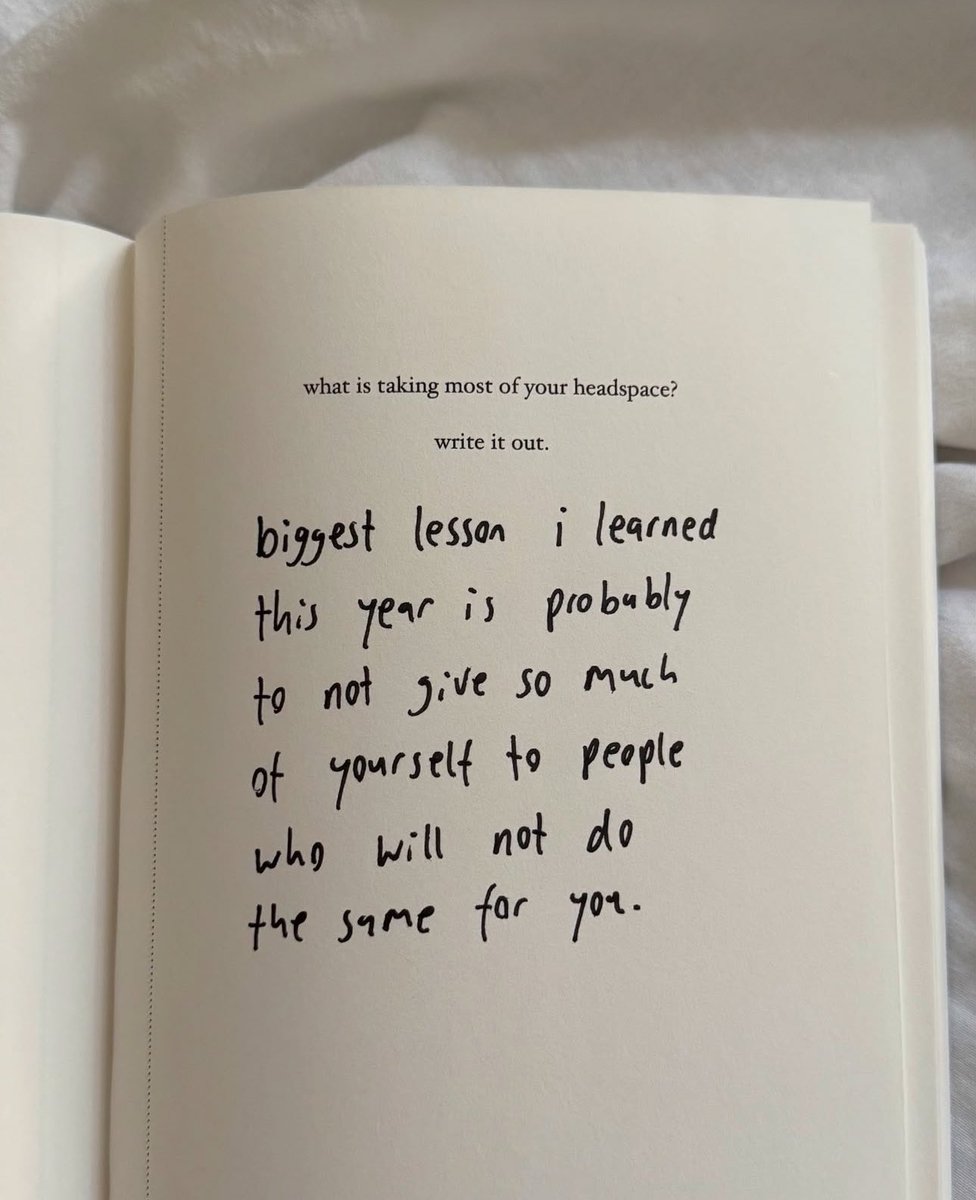 what is taking most of your headspace?
write it out.
biggest lesson i learned
this year is probably
to not give so much
of yourself to people
who will not do
the same for you.